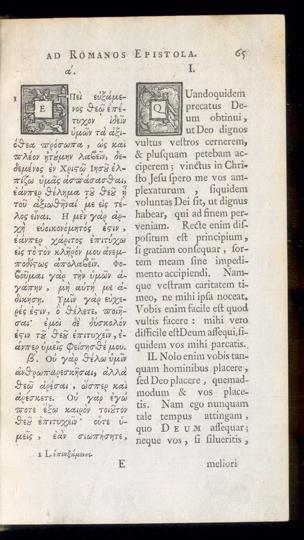 AD ROMANOS EPISTOLA. 65
α'.
1 ΕΠεὶ εὐξάμε-
νος θεῷ ἐπέ-
τυχον ἰδεῖν
ὑμῶν τὰ ἀξι-
όθεα πρόσωπα, ὡς καὶ
πλέον ἠτούμην λαβεῖν, δε-
δεμένος ἐν Χριστῷ Ἰησοῦ ἐλ-
πίζω ὑμᾶς ἀσπάσασθαι,
ἐάνπερ θέλημα τοῦ θεοῦ ᾖ
τοῦ ἀξιωθῆναί με εἰς τέ-
λος εἶναι. Ἡ μὲν γὰρ ἀρ-
χὴ εὐοικονόμητός ἐστιν,
ἐάνπερ χάριτος ἐπιτύχω
εἰς τὸ τὸν κλῆρόν μου ἀνεμ-
ποδίστως ἀπολαβεῖν. Φο-
βοῦμαι γὰρ τὴν ὑμῶν ἀ-
γάπην, μὴ αὐτή με ἀ-
δικήσῃ. Ὑμῖν γὰρ εὐχε-
ρές ἐστιν, ὃ θέλετε, ποιῆ-
σαι· ἐμοὶ δὲ δύσκολόν
ἐστιν τοῦ θεοῦ ἐπιτυχεῖν, ἐ-
άνπερ ὑμεῖς φείσησθέ μου.
β'. Οὐ γὰρ θέλω ὑμῖν
ἀνθρωπαρεσκῆσαι, ἀλλὰ
θεῷ ἀρέσαι, ὥσπερ καὶ
ἀρέσκετε. Οὐ γὰρ ἐγώ
ποτε ἕξω καιρὸν τοιοῦτον
θεοῦ ἐπιτυχεῖν· οὔτε ὑ-
μεῖς, ἐὰν σιωπήσητε,
1 L. ἐπευξάμενος.
I.
QUandoquidem
precatus De-
um obtinui,
ut Deo dignos
vultus vestros cernerem,
& plusquam petebam ac-
ciperem; vinctus in Chri-
sto Jesu spero me vos am-
plexaturum, siquidem
voluntas Dei sit, ut dignus
habear, qui ad finem per-
veniam. Recte enim dis-
positum est principium,
si gratiam consequar, for-
tem meam sine impedi-
mento accipiendi. Nam-
que vestram caritatem ti-
meo, ne mihi ipsa noceat.
Vobis enim facile est quod
vultis facere: mihi vero
difficile est Deum assequi, si-
quidem vos mihi parcatis.
II. Nolo enim vobis tan-
quam hominibus placere,
sed Deo placere, quemad-
modum & vos place-
tis. Nam ego nunquam
tale tempus attingam,
quo DEUM assequar;
neque vos, si silueritis,
E meliori